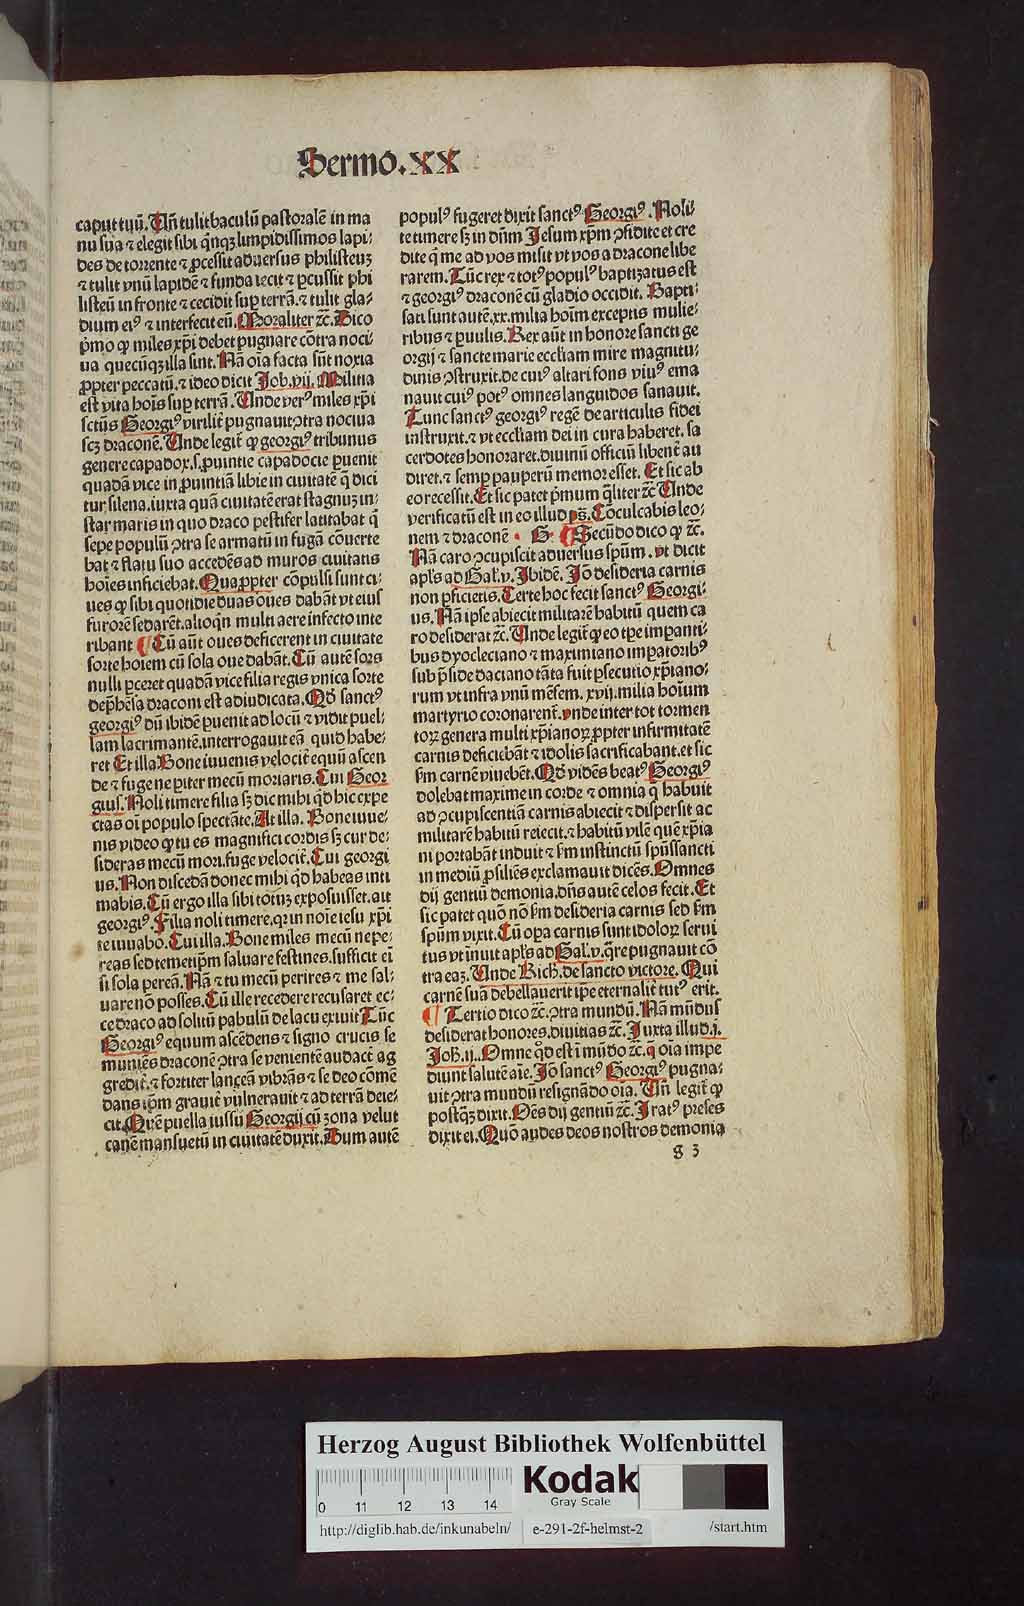 Sermo.XX
caput tuũ. Uñ tulit baculũ pastoralẽ in ma
nu sua ⁊ elegit sibi q̃nqꝫ limpidissimos lapi⸗
des de torrente ⁊ ꝓcessit aduersus philisteuꝫ
⁊ tulit vnũ lapidẽ ⁊ funda iecit ⁊ ꝑcussit phi
listeũ in fronte ⁊ cecidit suꝑ terrã.⁊ tulit gla⸗
dium eiꝰ ⁊ interfecit eũ. Moraliter ⁊c̃. Dico
p̃mo ꝙ miles xp̃i debet pugnare cõtra noci⸗
ua quecũqꝫ illa sint. Nã oĩa facta sũt noxia
ꝓpter peccatũ.⁊ ideo dicit Job.vij. Militia
est vita hoĩs suꝑ terrã. Unde verꝰ miles xp̃i
sctũs Georgiꝰ virilit̃ pugnauit ↄtra nociua
scꝫ draconẽ. Unde legit̃ ꝙ georgiꝰ tribunus
genere capadox.s.ꝓuintie capadocie ꝑuenit
quadã vice in ꝓuintiã libie in ciuitatẽ q̃ dici
tur silena.iuxta quã ciuitatẽ erat stagnuꝫ in⸗
star maris in quo draco pestifer latitabat q̃
sepe populũ ↄtra se armatũ in fugã cõuerte
bat ⁊ flatu suo accedẽs ad muros ciuitatis
hoĩes inficiebat. Quapropter cõpulsi sunt ci⸗
ues ꝙ sibi quotidie duas oues dabãt vt eius
furorẽ sedarẽt.alioqñ multi aere infecto inte
ribant ¶ Cũ aũt oues deficerent in ciuitate
sorte hoĩem cũ sola oue dabãt. Cũ autẽ sors
nulli ꝑceret quadã vice filia regis vnica sorte
dep̃hẽsa draconi est adiudicata. Qđ sanctꝰ
georgiꝰ dũ ibidẽ ꝑuenit ad locũ ⁊ vidit puel⸗
lam lacrimantẽ.interrogauit eã quid habe⸗
ret Et illa. Bone iuuenis velocit̃ equũ ascen
de ⁊ fuge ne ꝑiter mecũ moriaris. Cui Geor
gius. Noli timere filia sꝫ dic mihi qđ hic expe
ctas oĩ populo spectãte. At illa. Bone iuue⸗
nis video ꝙ tu es magnifici cordis sꝫ cur de⸗
sideras mecũ mori.fuge velocit̃. Cui georgi
us. Non discedã donec mihi qđ habeas inti
mabis. Cũ ergo illa sibi totuꝫ exposuisset.ait
georgiꝰ. Filia noli timere.qꝛ in noĩe iesu xp̃i
te iuuabo. Cui illa. Bone miles mecũ ne pe⸗
reas sed temetip̃m saluare festines.sufficit eĩ
si sola pereã. Nã ⁊ tu mecũ perires ⁊ me sal⸗
uare nõ posses. Cũ ille recedere recusaret ec⸗
ce draco ad solitũ pabulũ de lacu exiuit Tũc
Georgiꝰ equum ascẽdens ⁊ signo crucis se
muniẽs draconẽ ↄtra se venientẽ audact̃ ag
gredit̃.⁊ fortiter lanceã vibrãs ⁊ se deo cõmẽ
dans ip̃m grauit̃ vulnerauit ⁊ ad terrã deie⸗
cit. Quẽ puella iussu Georgij cũ zona velut
canẽ mansuetũ in ciuitatẽ duxit. Dum autẽ
populꝰ fugeret dixit sanctꝰ Georgiꝰ. Noli⸗
te timere sꝫ in dñm Jesum xp̃m ↄfidite et cre
dite q̃ me ad vos misit vt vos a dracone libe
rarem. Tũc rex ⁊ totꝰ populꝰ baptizatus est
⁊ georgiꝰ draconẽ cũ gladio occidit. Bapti⸗
sati sunt autẽ.xx.milia hoĩm exceptis mulie⸗
ribus ⁊ ꝑuulis. Rex aũt in honore sancti ge
orgij ⁊ sancte marie eccĺiam mire magnitu⸗
dinis ↄstruxit.de cuiꝰ altari fons viuꝰ ema
nauit cuiꝰ potꝰ omnes languidos sanauit.
Tunc sanctꝰ georgiꝰ regẽ de articulis fidei
instruxit.⁊ vt eccĺiam dei in cura haberet.sa
cerdotes honoraret.diuinũ officiũ libent̃ au
diret.⁊ semꝑ pauperũ memor esset. Et sic ab
eo recessit. Et sic patet p̃mum q̃liter ⁊c̃ Unde
verificatũ est in eo illud ps̃. Cõculcabis leo⸗
nem ⁊ draconẽ . G. ¶ Secũdo dico ꝙ ⁊c̃.
Nã caro ↄcupiscit aduersus sp̃um. vt dicit
apĺs ad Gaĺ.v. Ibidẽ. Jõ desideria carnis
non ꝑficietis. Certe hoc fecit sanctꝰ Georgi⸗
us. Nã ipse abiecit militarẽ habitũ quem ca
ro desiderat ⁊c̃. Unde legit̃ ꝙ eo tꝑe imperanti⸗
bus dyocleciano ⁊ maximiano imꝑatoribꝰ
sub p̃side daciano tãta fuit ꝑsecutio xp̃iano⸗
rum vt infra vnũ mẽsem.xvij.milia hoĩum
martyrio coronarent̃.vnde inter tot tormen
toꝝ genera multi xp̃ianoꝝ ꝓpter infirmitatẽ
carnis deficiebãt ⁊ idolis sacrificabant.et sic
ẜm carnẽ viuebẽt. Qđ vidẽs beatꝰ Georgiꝰ
dolebat maxime in corde ⁊ omnia q̃ habuit
ad ↄcupiscentiã carnis abiecit ⁊ dispersit ac
militarẽ habitũ reiecit.⁊ habitũ vilẽ quẽ xp̃ia
ni portabãt induit ⁊ ẜm instinctũ sp̃ussancti
in mediũ ꝓsiliẽs exclamauit dicẽs. Omnes
dij gentiũ demonia.dñs autẽ celos fecit. Et
sic patet quõ nõ ẜm desideria carnis sed ẜm
sp̃um vixit. Cũ oꝑa carnis sunt idoloꝝ serui
tus vt inuit apĺs ad Gaĺ.v.q̃re pugnauit cõ
tra eaꝫ. Unde Rich. de sancto victore. Qui
carnẽ suã debellauerit ip̃e eternalit̃ tutꝰ erit.
¶ Tertio dico ⁊c̃. ↄtra mundũ. Nã mũdus
desiderat honores.diuitias ⁊c̃. Juxta illud.j.
Joh.ij.. Omne qđ est ĩ mũdo ⁊c̃. q̃ oĩa impe
diunt salutẽ aĩe. Jõ sanctꝰ Georgiꝰ pugna⸗
uit ↄtra mundũ resignãdo oĩa. Uñ legit̃ ꝙ
postqꝫ dixit. Oẽs dij gentiũ ⁊c̃. Iratꝰ preses
dixit ei. Quõ audes deos nostros demonia
g 3
Herzog August Bibliothek Wolfenbüttel
Kodak
Gray Scale
0 11 12 13 14
http://diglib.hab.de/inkunabeln/ e-291-2f-helmst-2 /start.htm